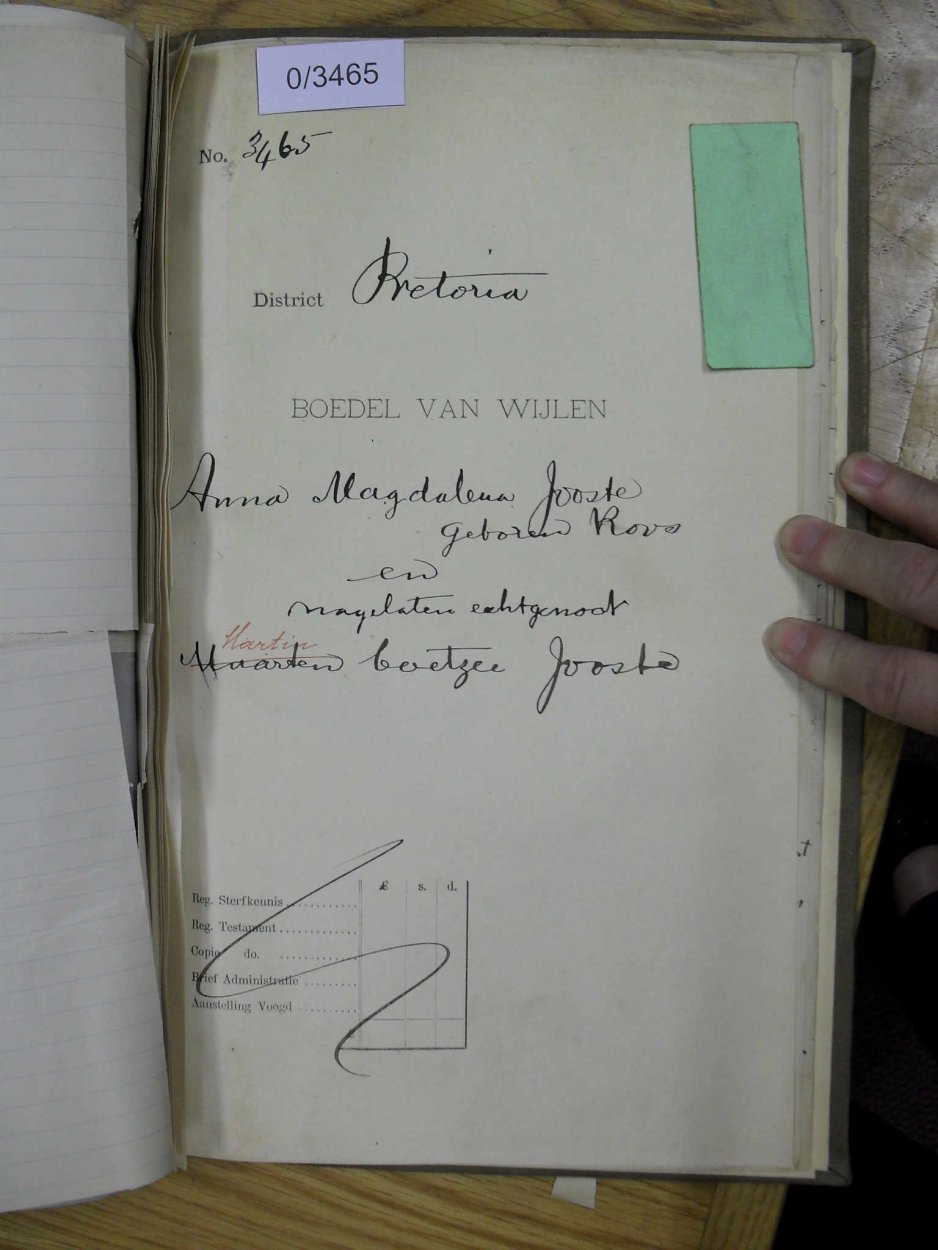 0/3465
No. 3465
District Pretoria
BOEDEL VAN WIJLEN
Anna Magdalena Jooste
geboren Roos
en
nagelaten echtgenoot
Martin
Maarten Coetzee Jooste
£ s. d.
Reg. Sterfkennis
Reg. Testament
Copie do.
Brief Administratie
Aanstelling Voogd